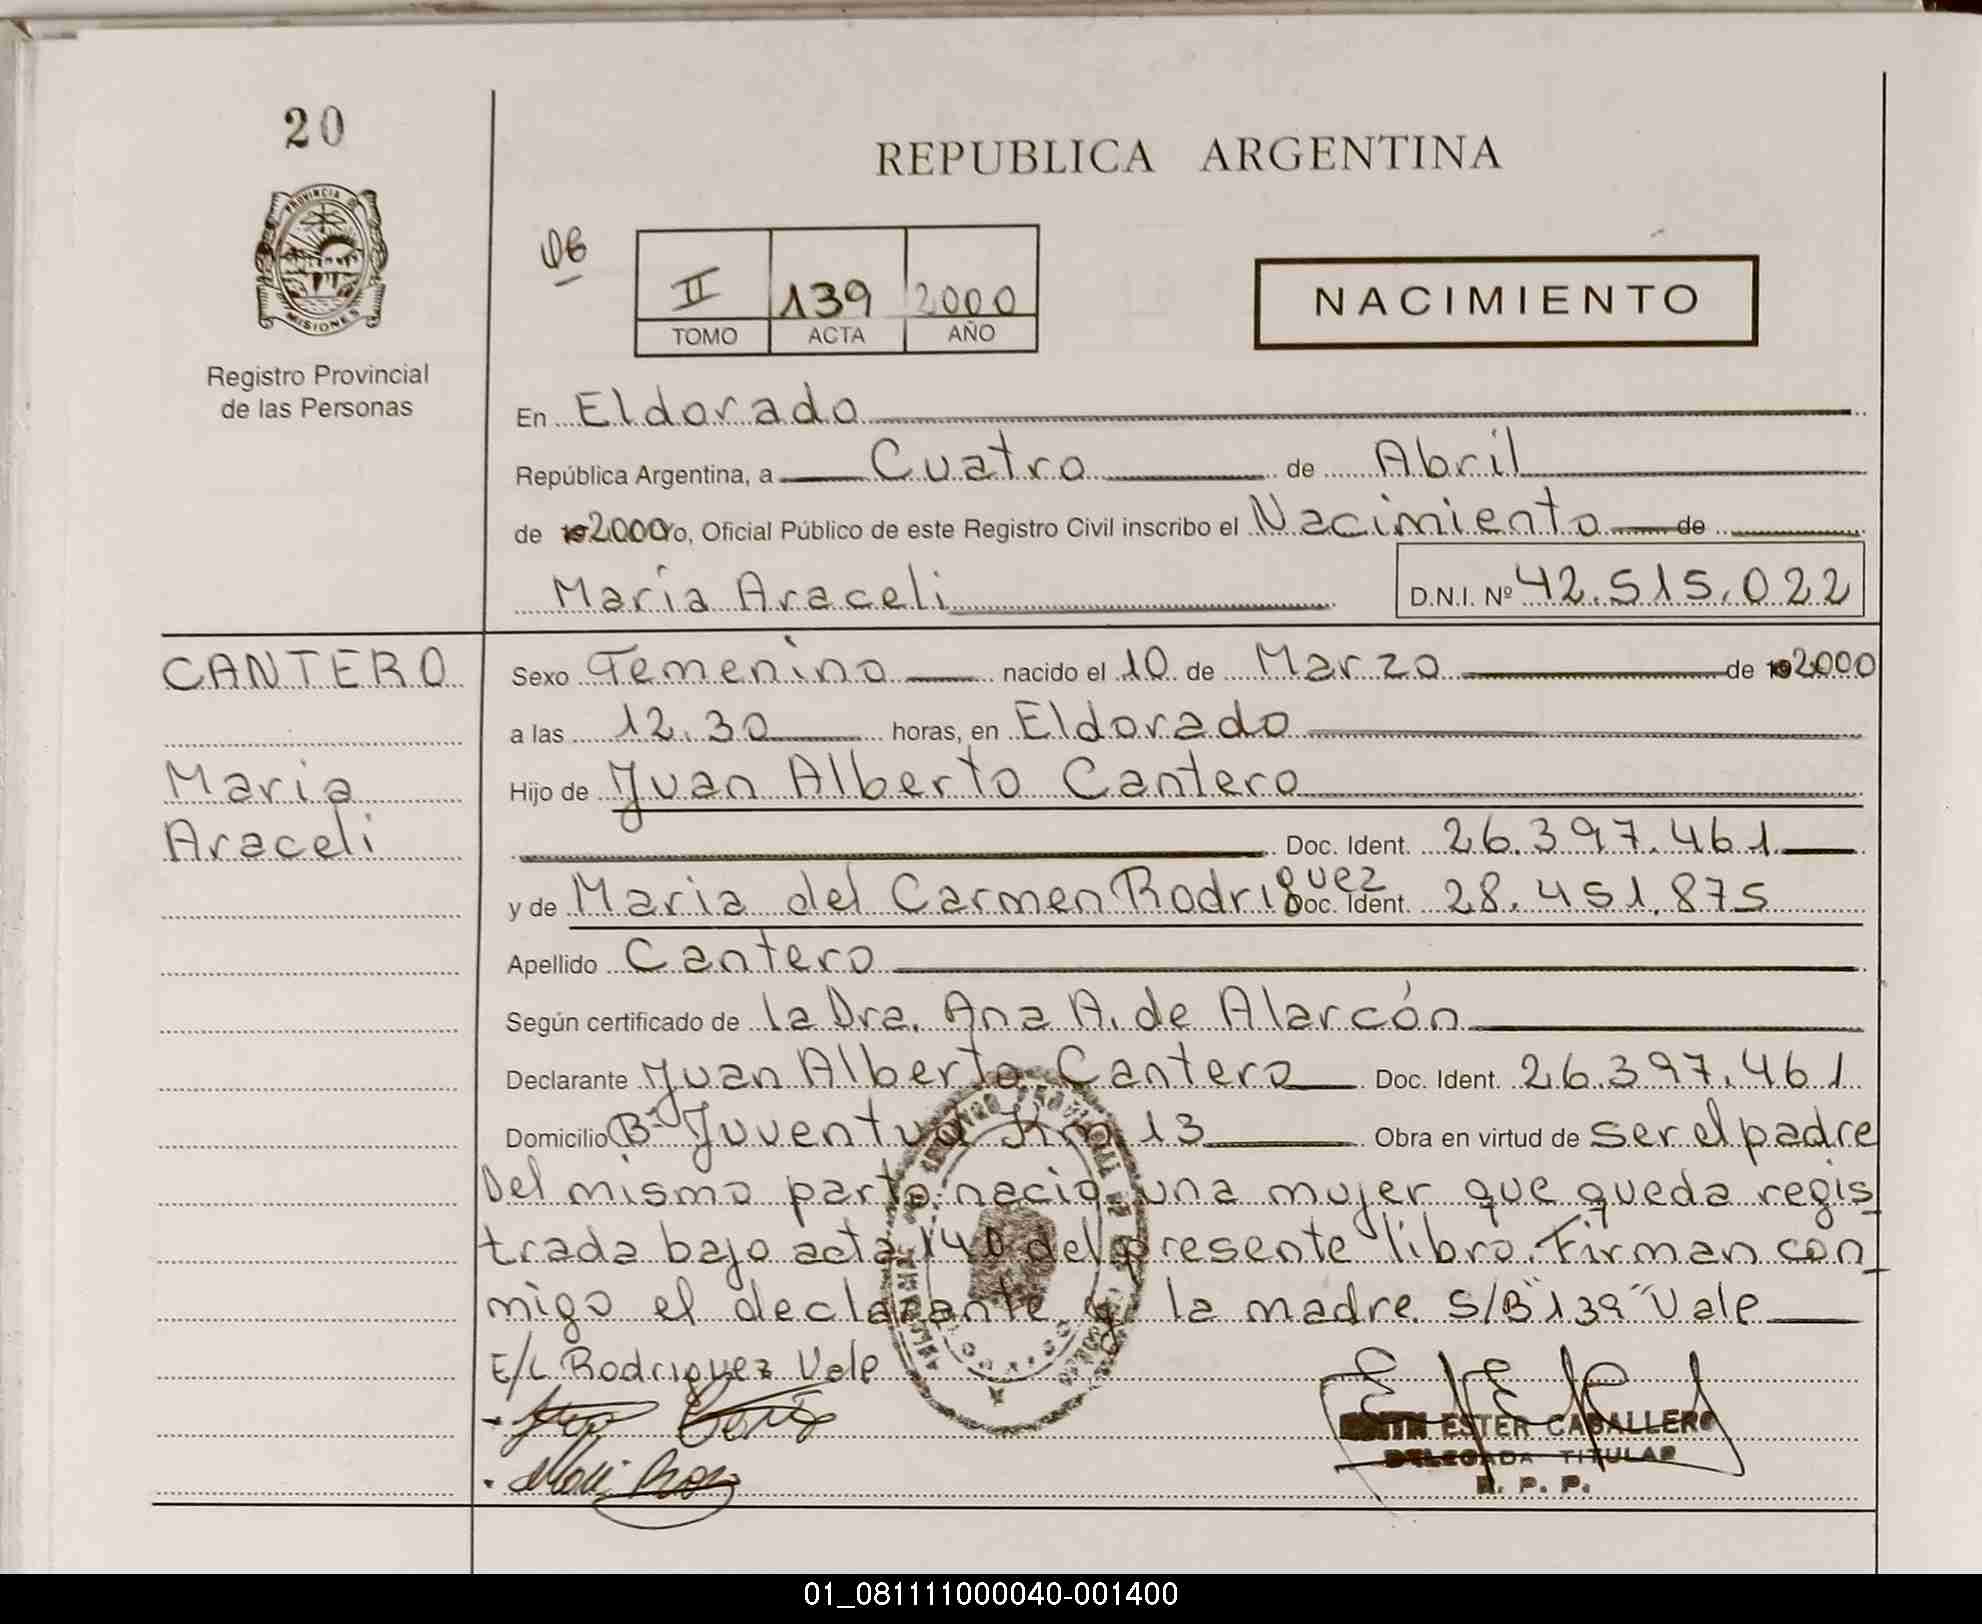 20
REPUBLICA ARGENTINA
PROVINCIA DE
MISIONES
Registro Provincial
de las Personas
II 139 2000
TOMO ACTA AÑO
NACIMIENTO
En Eldorado
República Argentina, a Cuatro de Abril
de 2000 yo, Oficial Público de este Registro Civil inscribo el Nacimiento de
Maria Araceli D.N.I. Nº 42.515.022
CANTERO
Maria
Araceli
Sexo Femenino nacido el 10 de Marzo de 2000
a las 12.30 horas, en Eldorado
Hijo de Juan Alberto Cantero
Doc. Ident. 26.397.461
y de Maria del Carmen Rodriguez Doc. Ident. 28.451.875
Apellido Cantero
Según certificado de la Dra. Ana A. de Alarcón
Declarante Juan Alberto Cantero Doc. Ident. 26.397.461
Domicilio Bº Juventud Km 13 Obra en virtud de ser el padre
Del mismo parto nacio una mujer que queda regis
trada bajo acta 140 del presente libro. Firman con
migo el declarante y la madre S/B "139" Vale
E/L Rodriguez Vale
ESTER CABALLERO
DELEGADA TITULAR
R. P. P.
01_081111000040-001400